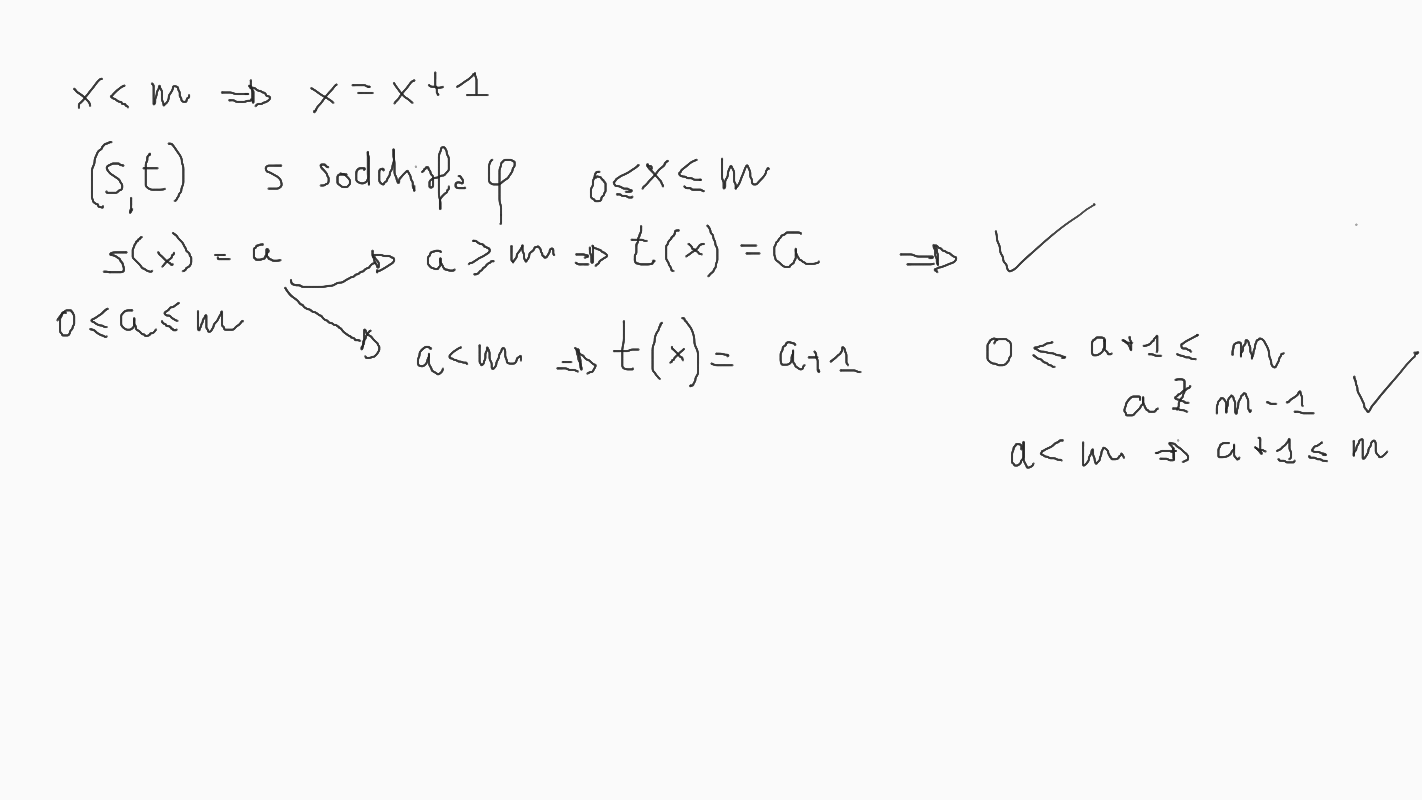 x < m ⇒ x = x + 1
(s, t) s soddisfa φ 0 ≤ x ≤ m
s(x) = a → a ≥ m ⇒ t(x) = a ⇒ ✓
0 ≤ a ≤ m
→ a < m ⇒ t(x) = a+1
0 ≤ a+1 ≤ m
a m - 1 ✓
a < m ⇒ a+1 ≤ m